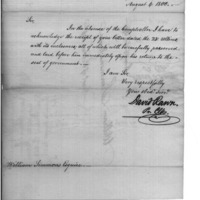 August 4. 1800.
Sir,
In the absence of the Comptroller I have to
acknowledge the receipt of your letter dated the 29 ultimo
with its inclosures, all of which will be carefully preserved
and laid before him immediately upon his return to the
seat of government.
I am Sir
Very respectfully
Your obed. Serv.
David Rawn
William Simmons Esquire